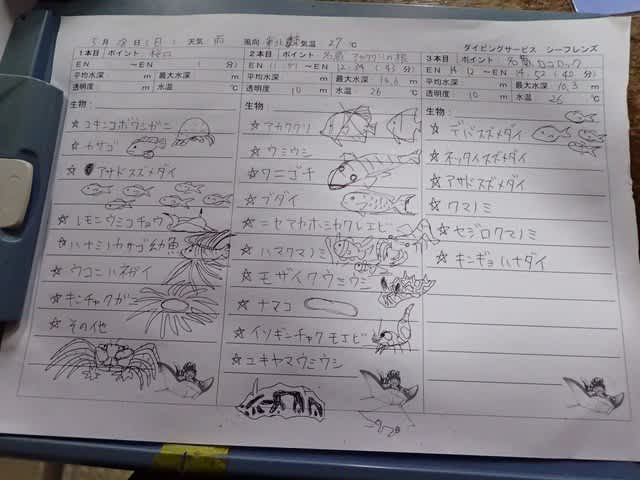 天気 雨 風向 気温 27 ℃
ダイビングサービス シーフレンズ
1本目 ポイント
EN ～EN ( 分)
平均水深 m 最大水深 m
透明度 m 水温 ℃
生物:
☆コキンコボウシガニ
☆カサゴ
☆アサドスズメダイ
☆レモンウミコチョウ
☆ハナミノカサゴ幼魚
☆ウコンハネガイ
☆キンチャクガニ
☆その他
2本目 ポイント
EN ～EN 12:34 (43 分)
平均水深 m 最大水深 m
透明度 10 m 水温 26 ℃
生物:
☆アカククリ
☆ウミウシ
☆ワニゴチ
☆ブダイ
☆ニセアカホシカクレエビ
☆ハマクマノミ
☆モザイクウミウシ
☆ナマコ
☆イソギンチャクモエビ
☆ユキヤマウミウシ
3本目 ポイント
EN 14:12 ～EN 14:52 (40 分)
平均水深 m 最大水深 10.3 m
透明度 10 m 水温 26 ℃
生物:
☆デバスズメダイ
☆ネッタイスズメダイ
☆アサドスズメダイ
☆クマノミ
☆セジロクマノミ
☆キンギョハナダイ